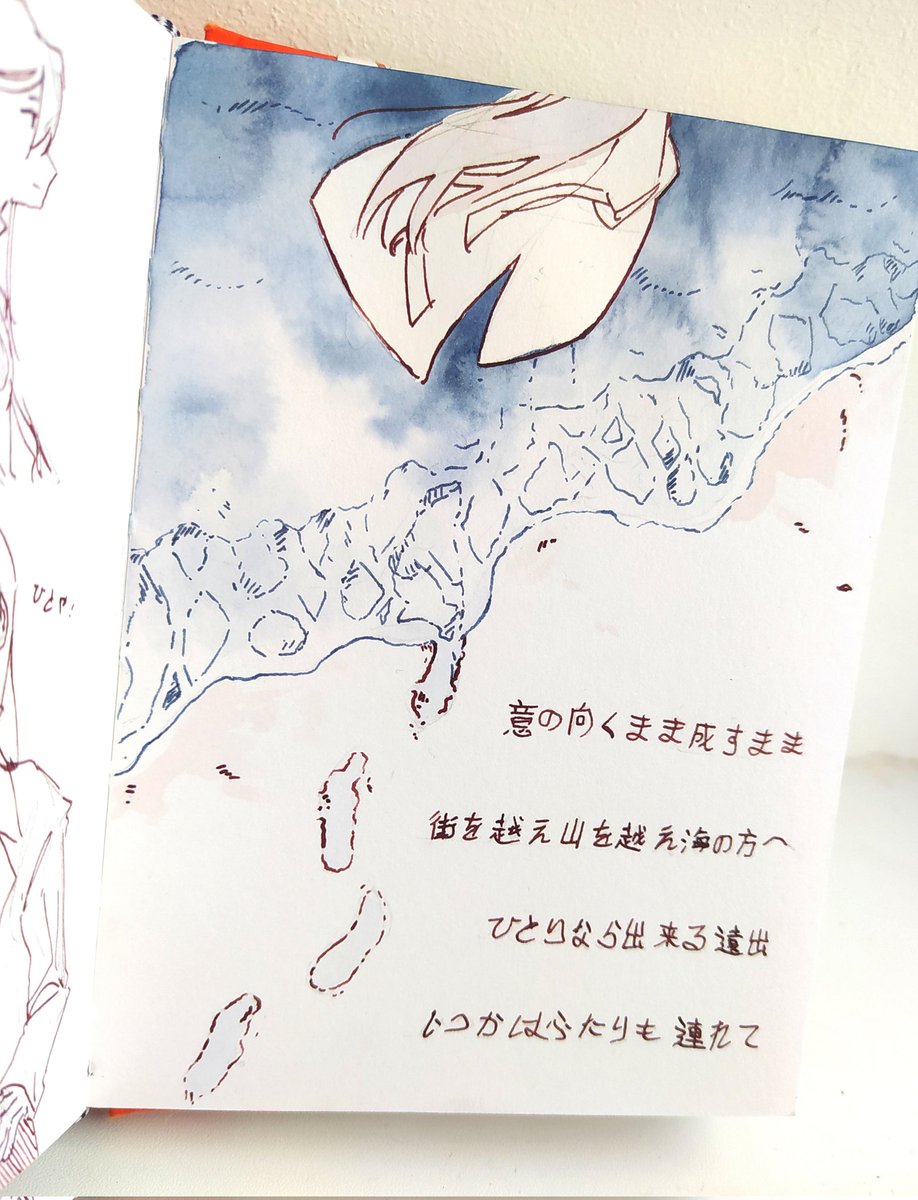 意の向くまま成すまま
街を越え山を越え海の方へ
ひとりなら出来る遠出
いつかはふたりも連れて